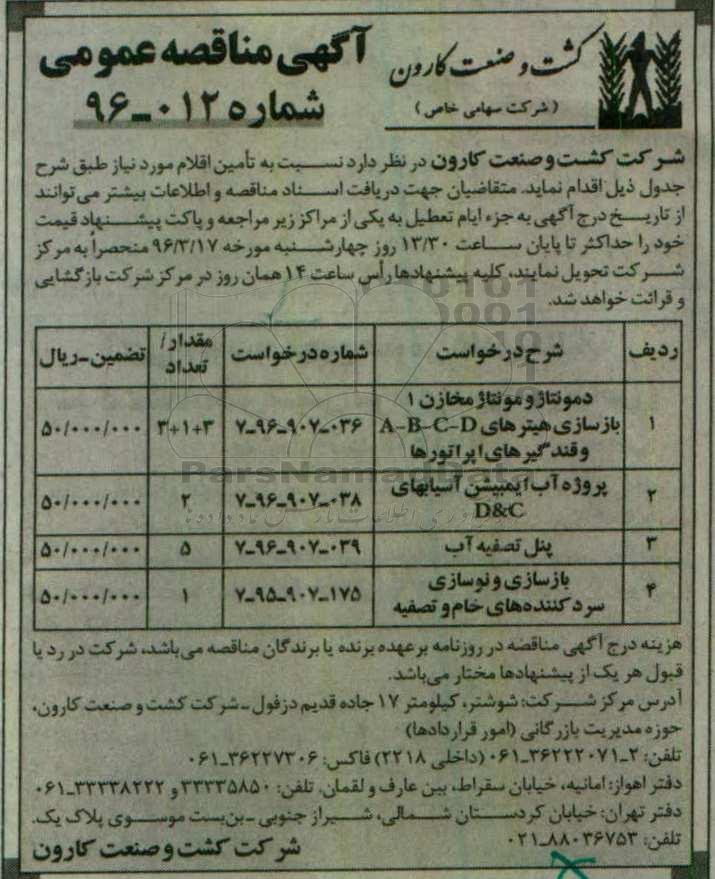 کشت و صنعت کارون
(شرکت سهامی خاص)
آگهی مناقصه عمومی
شماره ۰۱۲-۹۶
شرکت کشت و صنعت کارون در نظر دارد نسبت به تأمین اقلام مورد نیاز طبق شرح
جدول ذیل اقدام نماید. متقاضیان جهت دریافت اسناد مناقصه و اطلاعات بیشتر می توانند
از تاریخ درج آگهی به جزء ایام تعطیل به یکی از مراکز زیر مراجعه و پاکت پیشنهاد قیمت
خود را حداکثر تا پایان ساعت ۱۳/۳۰ روز چهارشنبه مورخه ۹۶/۳/۱۷ منحصراً به مرکز
شرکت تحویل نمایند، کلیه پیشنهادها رأس ساعت ۱۴ همان روز در مرکز شرکت بازگشایی
و قرائت خواهد شد.
ردیف شرح درخواست شماره درخواست مقدار/تعداد تضمین-ریال
۱ دمونتاژ و مونتاژ مخازن ۱ بازسازی هیترهای A-B-C-D و قندگیرهای اپراتورها ۷-۹۶-۹۰۷-۰۳۶ ۳+۱+۳ ۵۰/۰۰۰/۰۰۰
۲ پروژه آب ایمبیشن آسیابهای D&C ۷-۹۶-۹۰۷-۰۳۸ ۲ ۵۰/۰۰۰/۰۰۰
۳ پنل تصفیه آب ۷-۹۶-۹۰۷-۰۳۹ ۵ ۵۰/۰۰۰/۰۰۰
۴ بازسازی و نوسازی سردکننده‌های خام و تصفیه ۷-۹۵-۹۰۷-۱۷۵ ۱ ۵۰/۰۰۰/۰۰۰
هزینه درج آگهی مناقصه در روزنامه بر عهده برنده یا برندگان مناقصه می‌باشد، شرکت در رد یا
قبول هر یک از پیشنهادها مختار می‌باشد.
آدرس مرکز شرکت: شوشتر، کیلومتر ۱۷ جاده قدیم دزفول - شرکت کشت و صنعت کارون،
حوزه مدیریت بازرگانی (امور قراردادها)
تلفن: ۲-۳۶۲۲۲۰۷۱-۰۶۱ (داخلی ۲۲۱۸) فاکس: ۳۶۲۲۷۳۰۶-۰۶۱
دفتر اهواز: امانیه، خیابان سقراط، بین عارف و لقمان. تلفن: ۳۳۳۳۵۸۵۰ و ۳۳۳۳۸۲۲۲-۰۶۱
دفتر تهران: خیابان کردستان شمالی، شیراز جنوبی - بن‌بست موسوی پلاک یک.
تلفن: ۸۸۰۳۶۷۵۳-۰۲۱
شرکت کشت و صنعت کارون